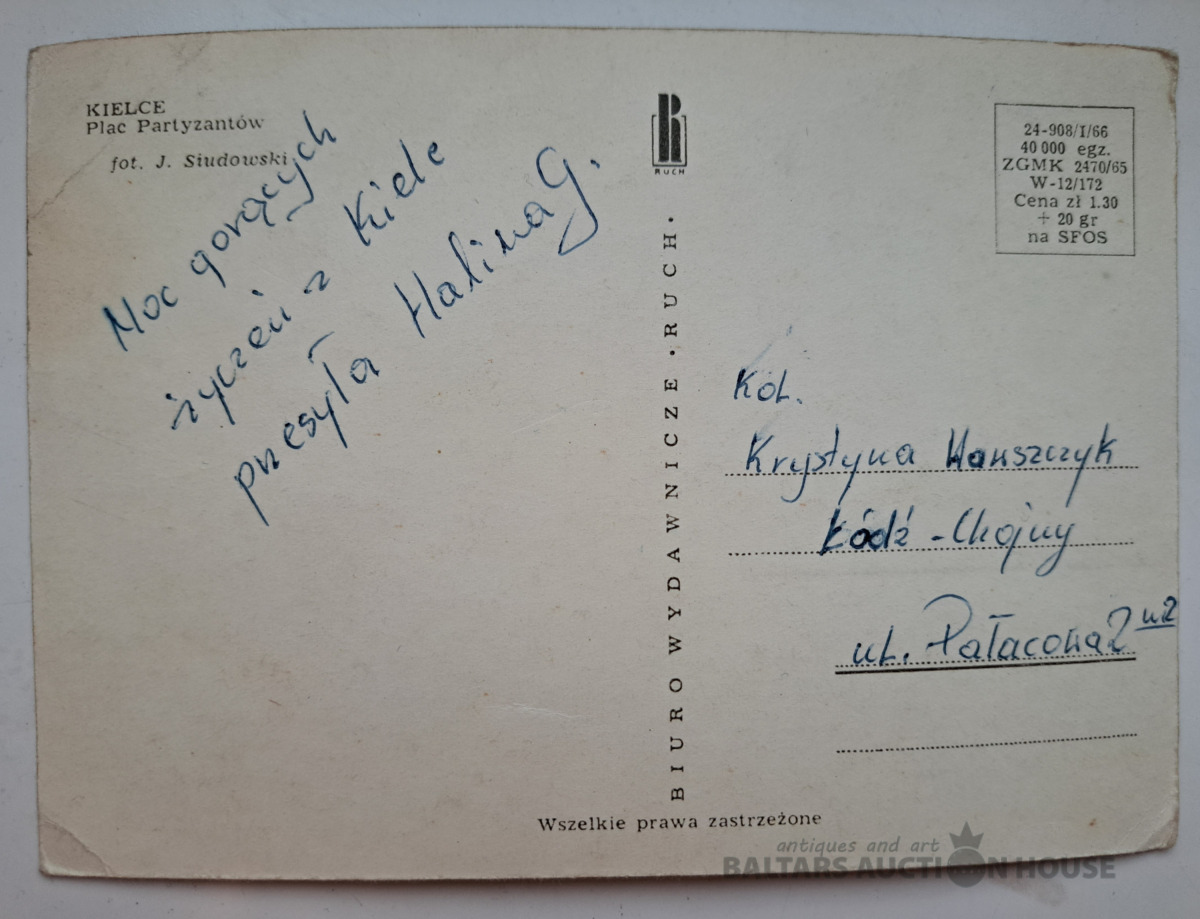 KIELCE
Plac Partyzantów
fot. J. Siudowski
Moc gorących
życzeń z Kielc
przesyła Halina G.
RUCH
BIURO WYDAWNICZE · RUCH ·
24-908/I/66
40 000 egz.
ZGMK 2470/65
W-12/172
Cena zł 1.30
+ 20 gr
na SFOS
Kol.
Krystyna
Łódź - Chojny
ul. Pałacowa 2 m 2
Wszelkie prawa zastrzeżone
antiques and art
BALTARS AUCTION HOUSE